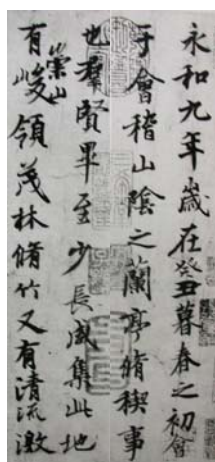 永和九年歲在癸丑暮春之初會
于會稽山陰之蘭亭脩稧事
也羣賢畢至少長咸集此地
有崇山峻領茂林脩竹又有清流激